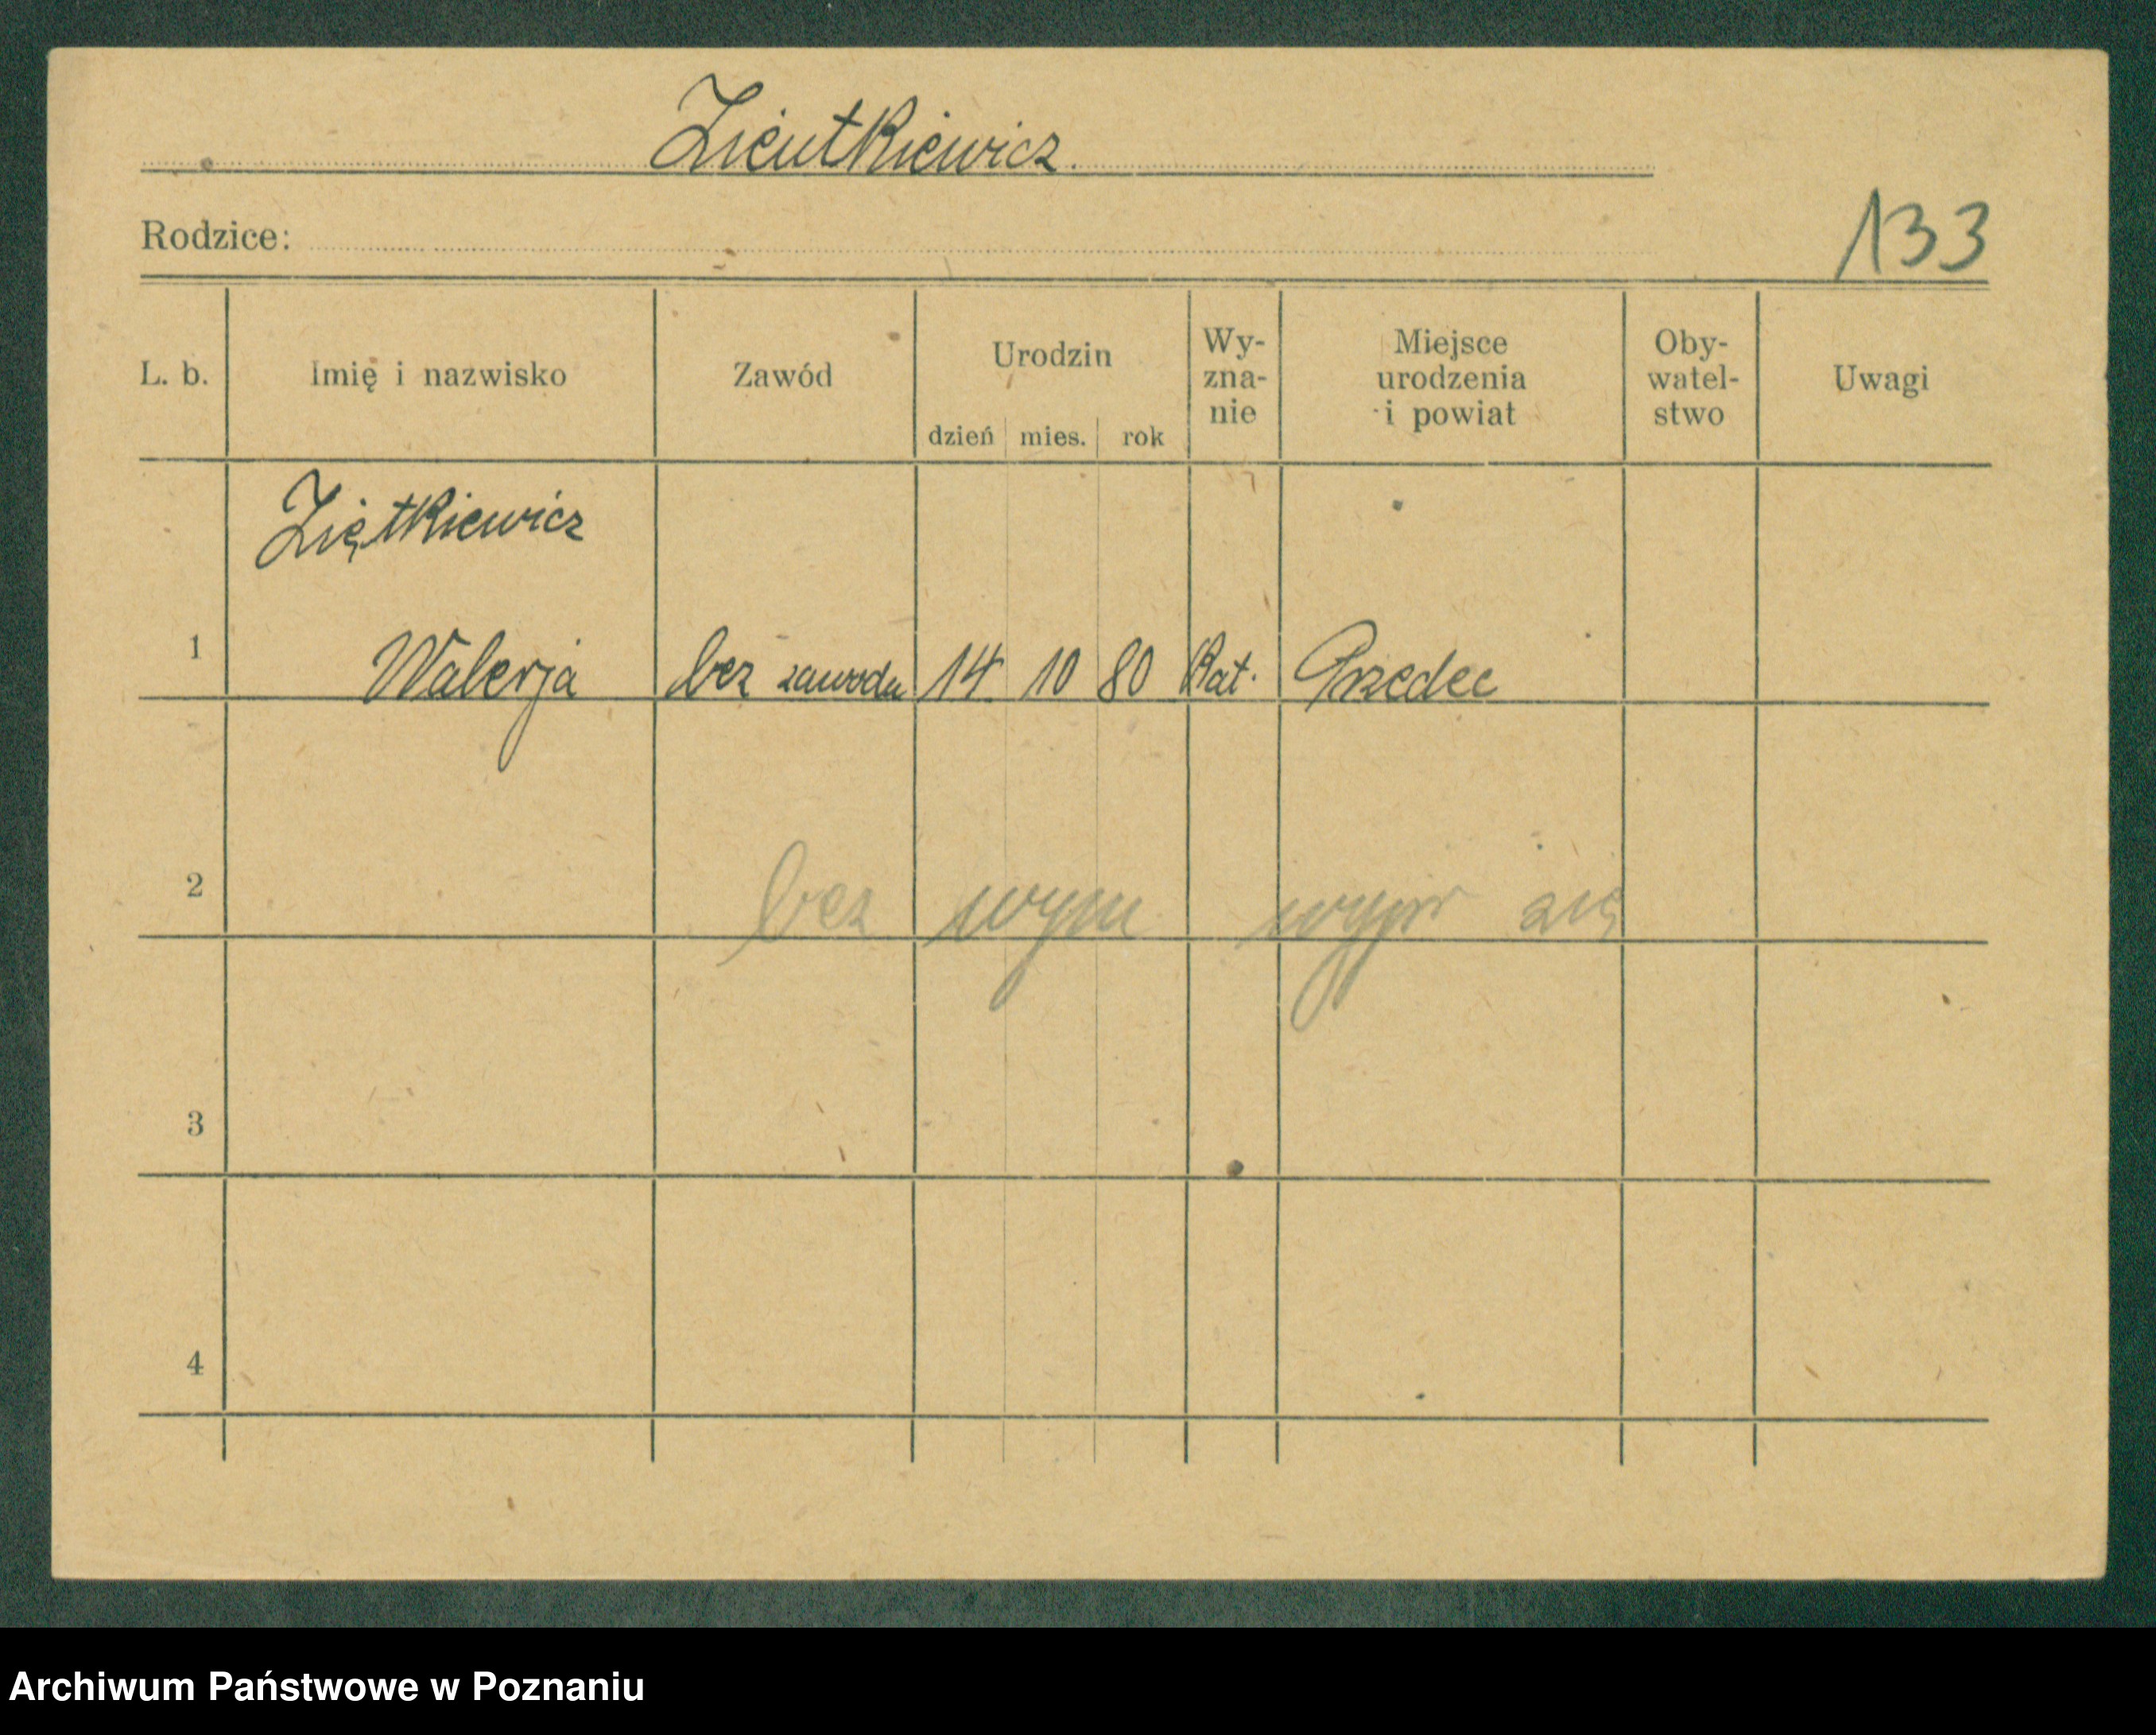 Zientkiewicz.
Rodzice:
133
L. b. Imię i nazwisko Zawód Urodzin dzień mies. rok Wy-zna-nie Miejsce urodzenia i powiat Oby-watel-stwo Uwagi
Ziętkiewicz
1 Walerja bez zawodu 14 10 80 Kat. Przedec
2 bez wym się
3
4
Archiwum Państwowe w Poznaniu